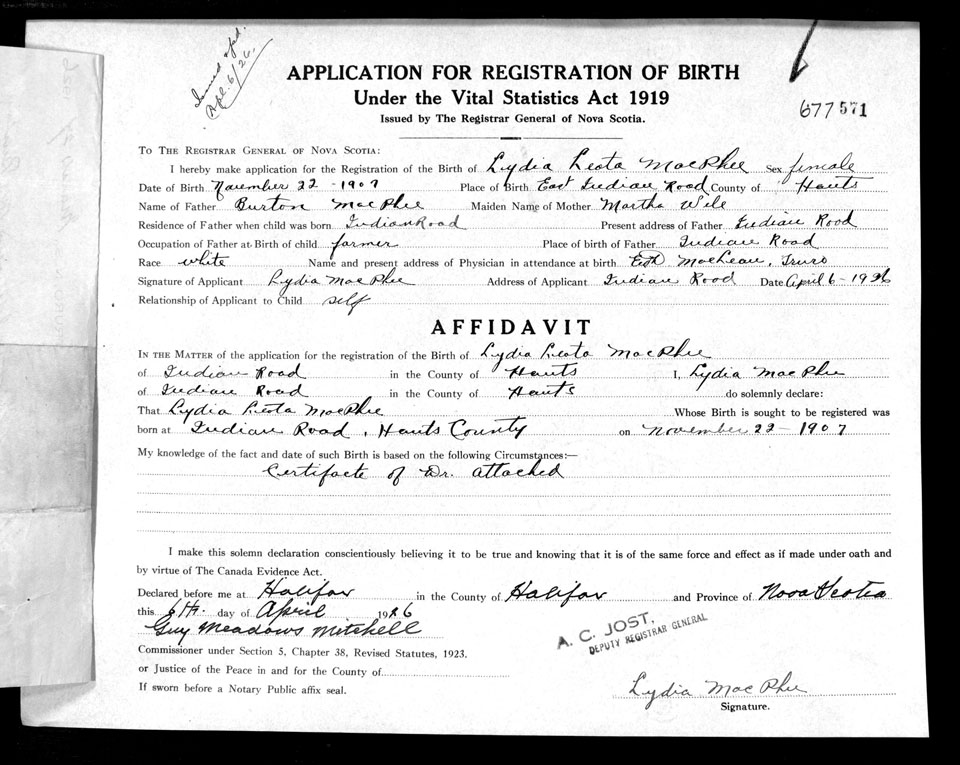 Issued
Apl. 6/26.
APPLICATION FOR REGISTRATION OF BIRTH
Under the Vital Statistics Act 1919
Issued by The Registrar General of Nova Scotia.
677571
To The Registrar General of Nova Scotia:
I hereby make application for the Registration of the Birth of Lydia Leota MacPhee Sex female
Date of Birth November 22 - 1907 Place of Birth East Indian Road County of Hants
Name of Father Burton MacPhee Maiden Name of Mother Martha Wile
Residence of Father when child was born Indian Road Present address of Father Indian Road
Occupation of Father at Birth of child farmer Place of birth of Father Indian Road
Race white Name and present address of Physician in attendance at birth MacLean, Truro
Signature of Applicant Lydia MacPhee Address of Applicant Indian Road Date April 6 - 1926
Relationship of Applicant to Child self
AFFIDAVIT
In the Matter of the application for the registration of the Birth of Lydia Leota MacPhee
of Indian Road in the County of Hants I, Lydia MacPhee
of Indian Road in the County of Hants do solemnly declare:
That Lydia Leota MacPhee Whose Birth is sought to be registered was
born at Indian Road, Hants County on November 22 - 1907
My knowledge of the fact and date of such Birth is based on the following Circumstances:—
Certifacte of Dr. attached
I make this solemn declaration conscientiously believing it to be true and knowing that it is of the same force and effect as if made under oath and
by virtue of The Canada Evidence Act.
Declared before me at Halifax in the County of Halifax and Province of Nova Scotia
this 6th. day of April 1926
Guy Meadows Mitchell
A. C. JOST,
DEPUTY REGISTRAR GENERAL
Commissioner under Section 5, Chapter 38, Revised Statutes, 1923.
or Justice of the Peace in and for the County of
If sworn before a Notary Public affix seal.
Lydia MacPhee
Signature.